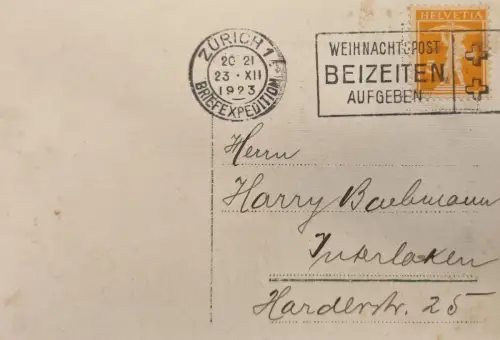 ZÜRICH 1
20 21
23 · XII
1923
BRIEFEXPEDITION
WEIHNACHTSPOST
BEIZEITEN
AUFGEBEN
HELVETIA
Herrn
Harry Baehmann
Interlaken
Harderstr. 25